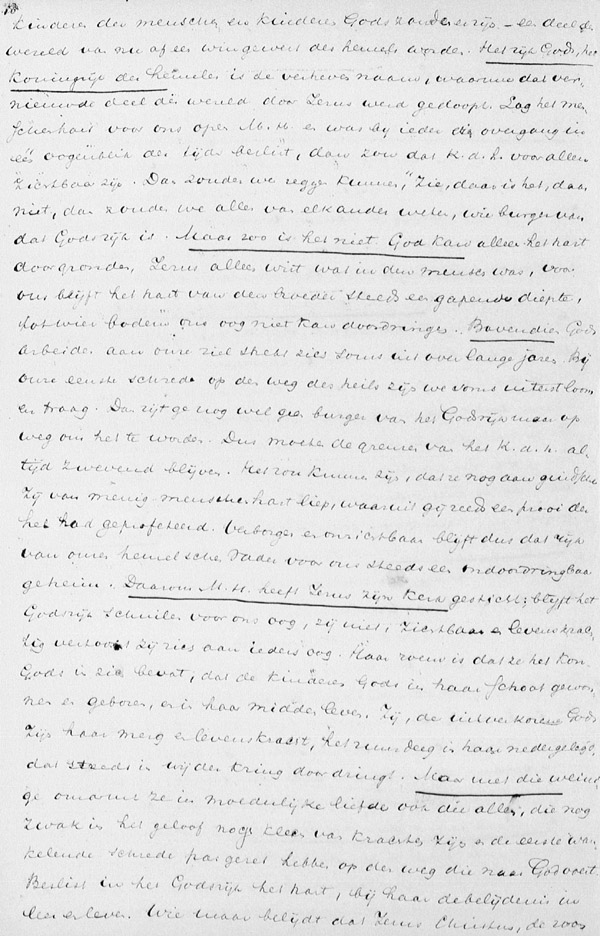 kinderen der menschen en kinderen Gods zonder erzijn – een deel der
wereld van nu af een wingewest des hemels worden. Het rijk Gods, het
Koningrijk der hemelen is de verheven naam, waarmee dat ver-
nieuwde deel der wereld door Jezus werd gedoopt. Lag het men
schenhart voor ons open M. H. en was bij ieder die overgang in
één oogenblik des tijds beslist, dan zou dat K. d. h. voor allen
zichtbaar zijn. Dan zouden we zeggen kunnen, "Zie, daar is het, daar
niet, dan zouden we allen van elkander weten, wie burger van
dat Godsrijk is. Maar zoo is het niet. God kan alleen het hart
doorgronden, Jezus alleen wist wat in den mensch was, voor
ons blijft het hart van den broeder steeds een gapende diepte,
tot wier bodem ons oog niet kan doordringen. Bovendien Gods
arbeiden aan onze ziel strekt zich soms uit over lange jaren. Bij
onze eerste schrede op den weg des heils zijn we soms uiterst loom
en traag. Dan zijt ge nog wel geen burger van het Godsrijk maar op
weg om het te worden. Dus moeten de grenzen van het K. d. h. al-
tijd zwevend blijven. Het zou kunnen zijn, dat ze nog aan gindsche
zij van menig menschenhart liep, waaruit gij reeds een prooi der
hel had geprofeteerd. Verborgen en onzichtbaar blijft dus dat rijk
van onzen hemelschen Vader voor ons steeds een ondoordringbaar
geheim. Daarom M. H. heeft Jezus zijn Kerk gesticht; blijft het
Godsrijk schuilen voor ons oog, zij niet, zichtbaar en levenskrach-
tig vertoont zij zich aan ieders oog. Haar roem is dat ze het Kon.
Gods in zich bevat, dat de kinderen Gods in haar schoot gewon-
nen en geboren, en in haar midden leven. Zij, de uitverkorenen Gods
zijn haar merg en levenskracht, het zuurdeeg in haar nedergelegd,
dat steeds in wijder kring doordringt. Maar met die weini-
ge omarmt ze in moederlijke liefde ook die allen, die nog
zwak in het geloof nog klein van krachten zijn en de eerste wan-
kelende schrede pas gezet hebben op den weg die naar God voert.
Beslist in het Godsrijk het hart, bij haar de belijdenis in
leer en leven. Wie maar belijdt dat Jezus Christus, de zoon